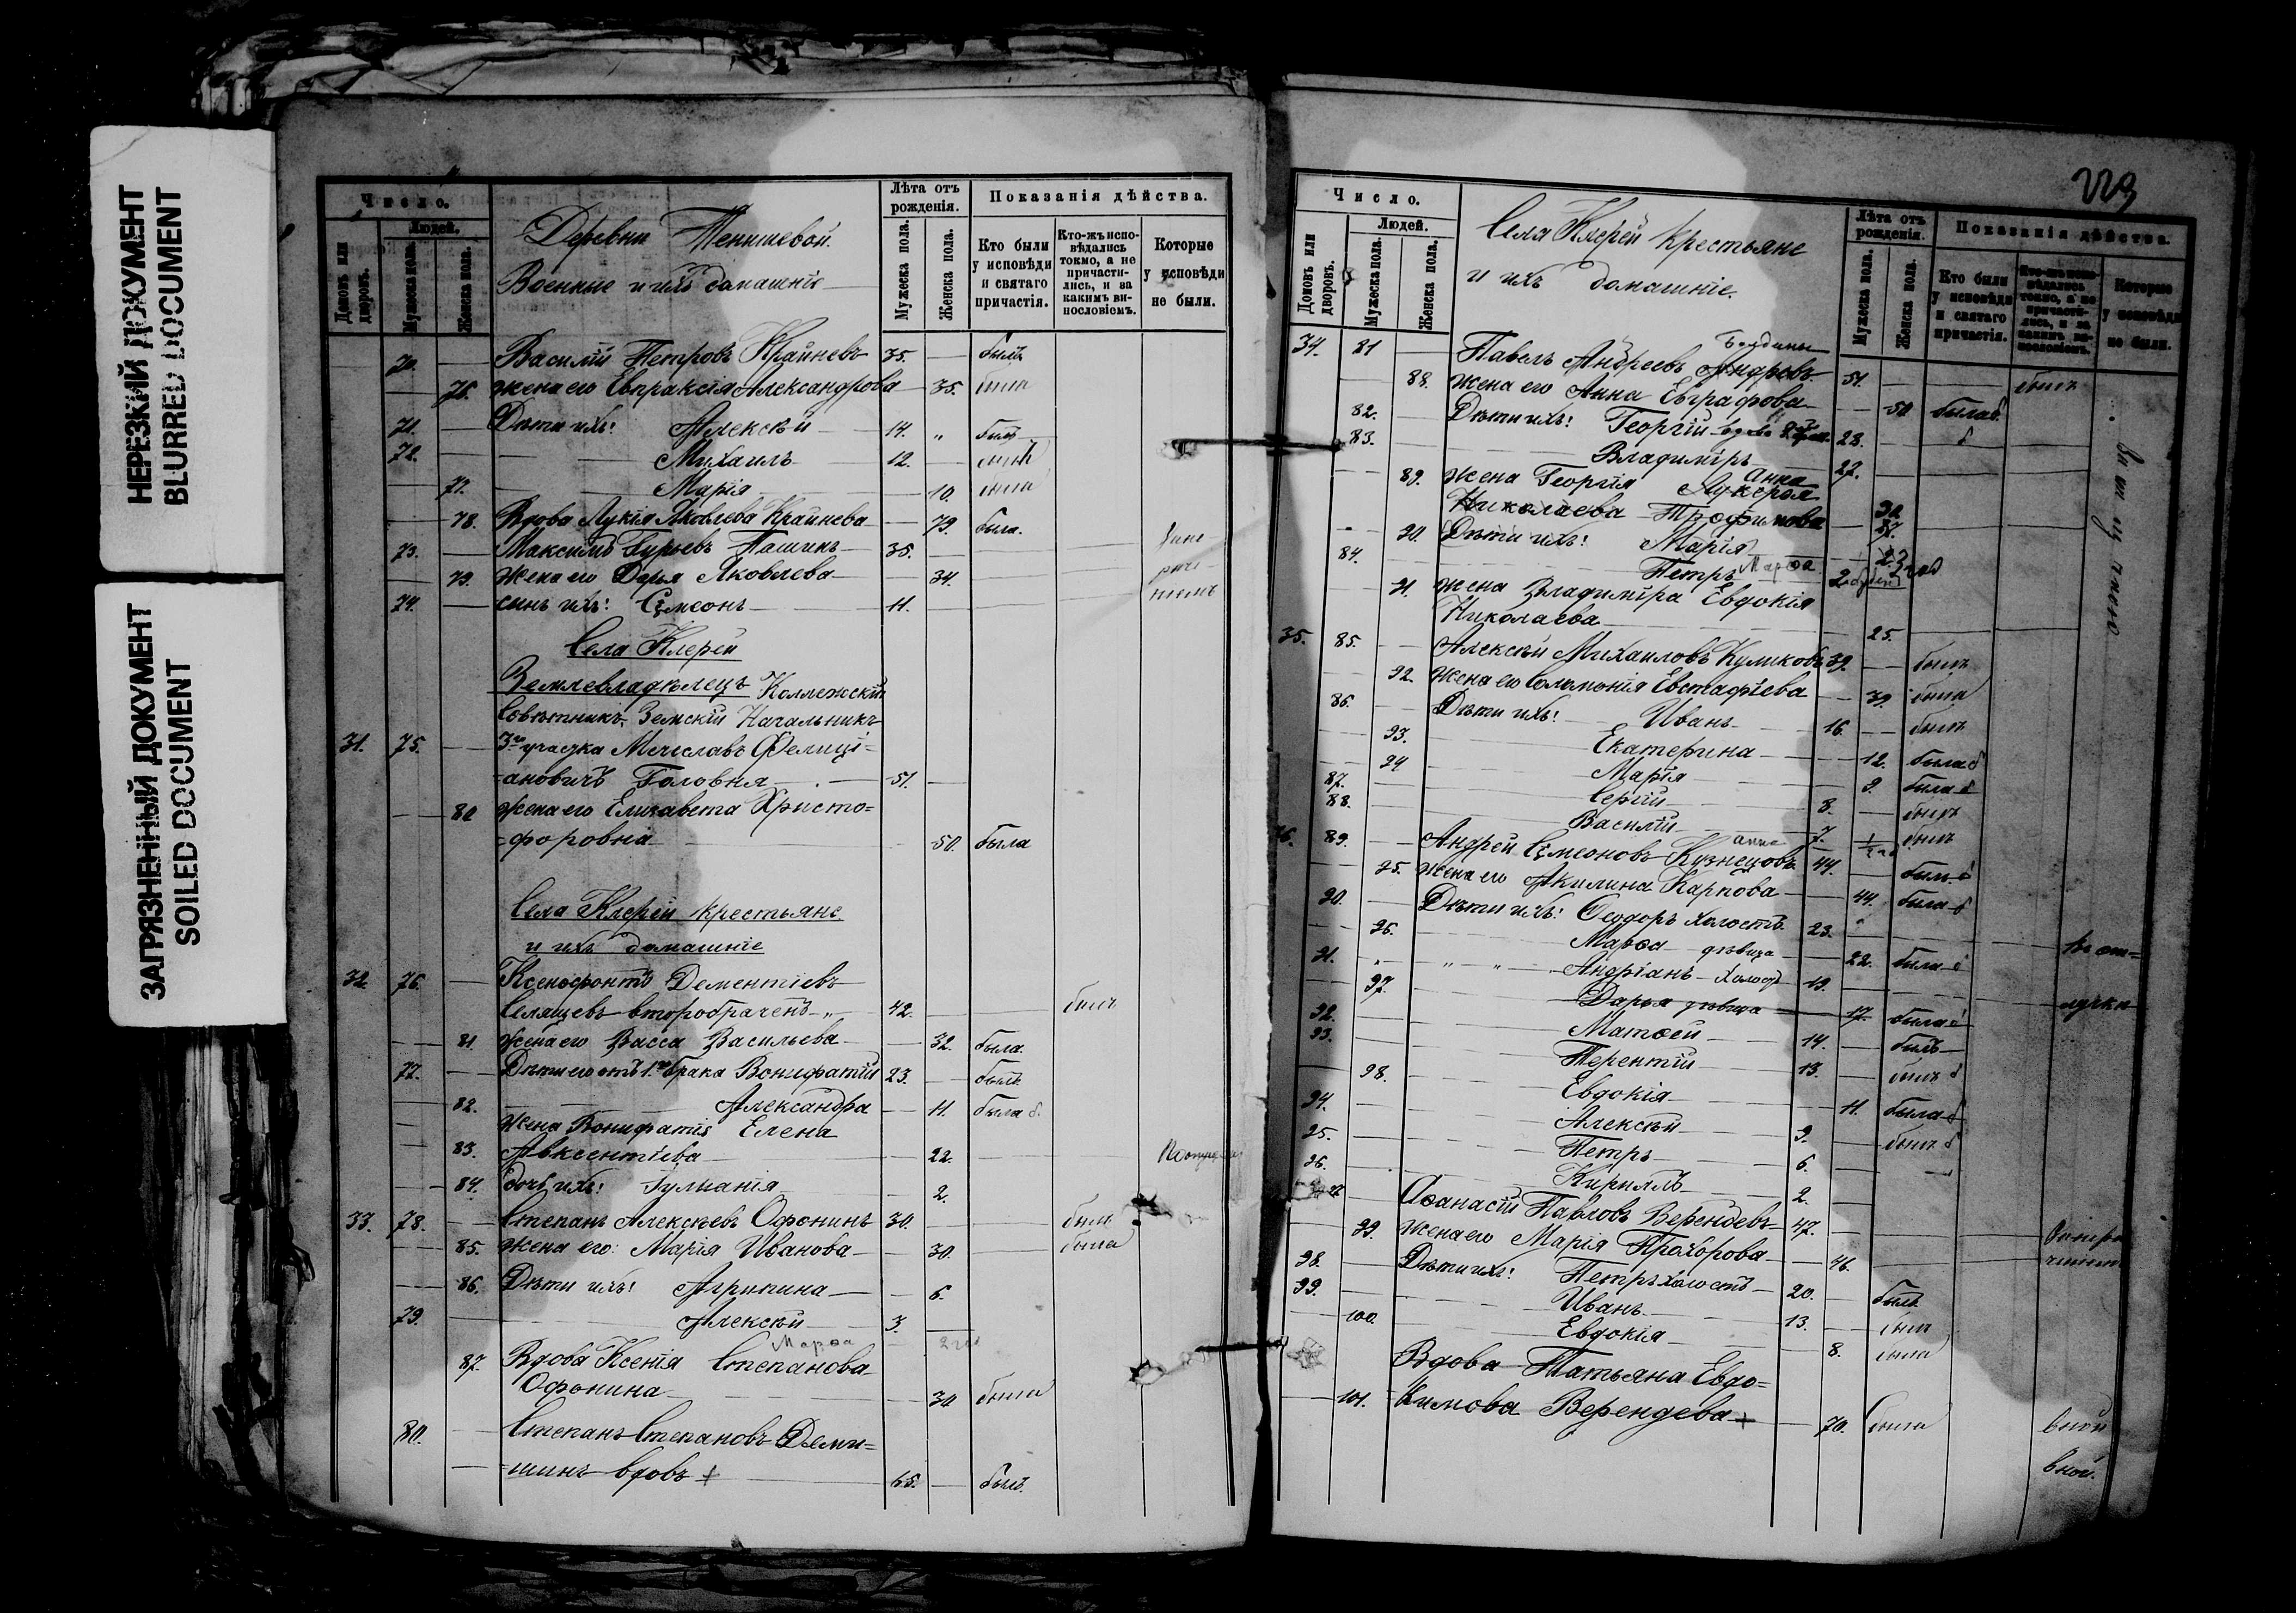 НЕРЕЗКИЙ ДОКУМЕНТ
BLURRED DOCUMENT
ЗАГРЯЗНЕННЫЙ ДОКУМЕНТ
SOILED DOCUMENT
Число.
Людей.
Домовъ или дворовъ.
Мужеска пола.
Женска пола.
Деревни Теншевой.
Военные и ихъ домашніе
Лѣта отъ рожденія.
Мужеска пола.
Женска пола.
Показанія дѣйства.
Кто были у исповѣди и святаго причастія.
Кто-жъ исповѣдались токмо, а не причастились, и за какимъ винословіемъ.
Которые у исповѣди не были.
70. Василій Петровъ Крайневъ 35. былъ
76. жена его Евпраксія Александрова 35. была
71. Дѣти ихъ: Алексѣй 14. былъ
72. Михаилъ 12. былъ
77. Марія 10. была
78. Вдова Лукія Яковлева Крайнева 79. была.
73. Максимъ Гурьевъ Пашинъ 35.
79. жена его Дарья Яковлева 34.
74. сынъ ихъ: Сѵмеонъ 11.
Села Клерей
Землевладѣлецъ Коллежскій
Совѣтникъ, Земскій Начальникъ
31. 75. 3го участка Мечеславъ Фелиці=
=ановичъ Головня 51.
80 жена его Елизавета Христо=
=форовна 50. была
Села Клерей крестьяне
и ихъ домашніе
32. 76. Ксенофонтъ Дементіевъ
Селящевъ второбраченъ 42. былъ
81. жена его Васса Васильева 32. была.
77. Дѣти его отъ 1го брака Вонифатій 23. былъ
82. Александра 11. была б.
жена Вонифатія Елена
83. Авксентіева 22.
84. дочь ихъ: Іуліанія 2.
33. 78. Степанъ Алексѣевъ Офонинъ 30. былъ
85. жена его: Марія Иванова 30. была
86. Дѣти ихъ: Агрипина 6.
79. Алексѣй 3.
Марѳа
87. Вдова Ксенія Степанова
Офонина 30 была
80. Степанъ Степановъ Деми=
=шинъ вдовъ + 65. былъ.
223
Число.
Людей.
Домовъ или дворовъ.
Мужеска пола.
Женска пола.
Села Клерей крестьяне
и ихъ домашніе.
Лѣта отъ рожденія.
Мужеска пола.
Женска пола.
Показанія дѣйства.
Кто были у исповѣди и святаго причастія.
Кто-жъ исповѣдались токмо, а не причастились, и за какимъ винословіемъ.
Которые у исповѣди не были.
34. 81 Павелъ Андреевъ 51. былъ
88. жена его Анна Евграфова 50 была б
82. Дѣти ихъ: Георгій 28. б
83. Владиміръ 27.
89. жена Георгія Анна
Николаева
90. Дѣти ихъ: Марія
84. Петръ Марѳа 2
91. жена Владиміра Евдокія
Николаева 25.
35. 85. Алексѣй Михаиловъ Куликовъ 39. былъ
92. жена его Соломонія Евстафіева 39. была
86. Дѣти ихъ: Иванъ 16. былъ
93. Екатерина 12. была б
94 Марія 9. была б
87. Сергій 8. былъ
88. Василій 7. былъ
Анна
36. 89. Андрей Сѵмеоновъ Кузнецовъ 44. былъ б
95. жена его Акилина Карпова 44. была б
90. Дѣти ихъ: Ѳеодоръ холостъ 23.
96. Марѳа дѣвица 22. была б
91. Андріанъ холостъ 19.
97. Дарья дѣвица 17. была б
92. Матѳей 14. былъ
93. Терентій 13. былъ б
98. Евдокія 11. была б
94. Алексѣй 9. былъ б
95. Петръ 6.
96. Кириллъ 2.
97 Аѳанасій Павловъ Верендеевъ 47.
99. жена его Марія Прохорова 46.
98. Дѣти ихъ: Петръ холостъ 20. былъ
99. Иванъ 13. былъ
100. Евдокія 8. была
Вдова Татьяна Евдо=
101. =кимова Верендеева + 70. была